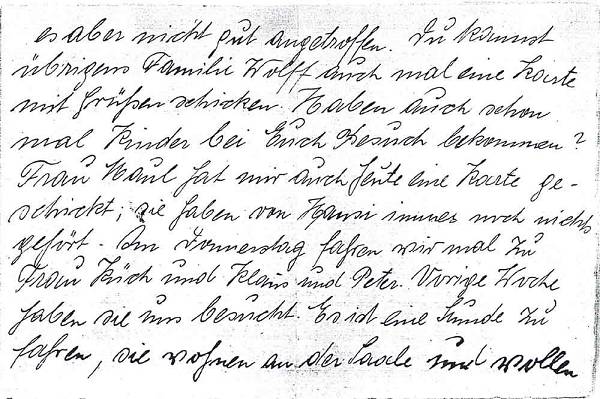 es aber nicht gut angetroffen. Du kannst
übrigens Familie Wolff auch mal eine Karte
mit Grüßen schicken. Haben auch schon
mal Kinder bei Euch Besuch bekommen?
Frau Haul hat mir auch heute eine Karte ge-
schickt; sie haben von Hansi immer noch nichts
gehört. Am Donnerstag fahren wir mal zu
Frau Küch und Klaus und Peter. Vorige Woche
haben sie uns besucht. Es ist eine Stunde zu
fahren, sie wohnen an der Saale und wollen